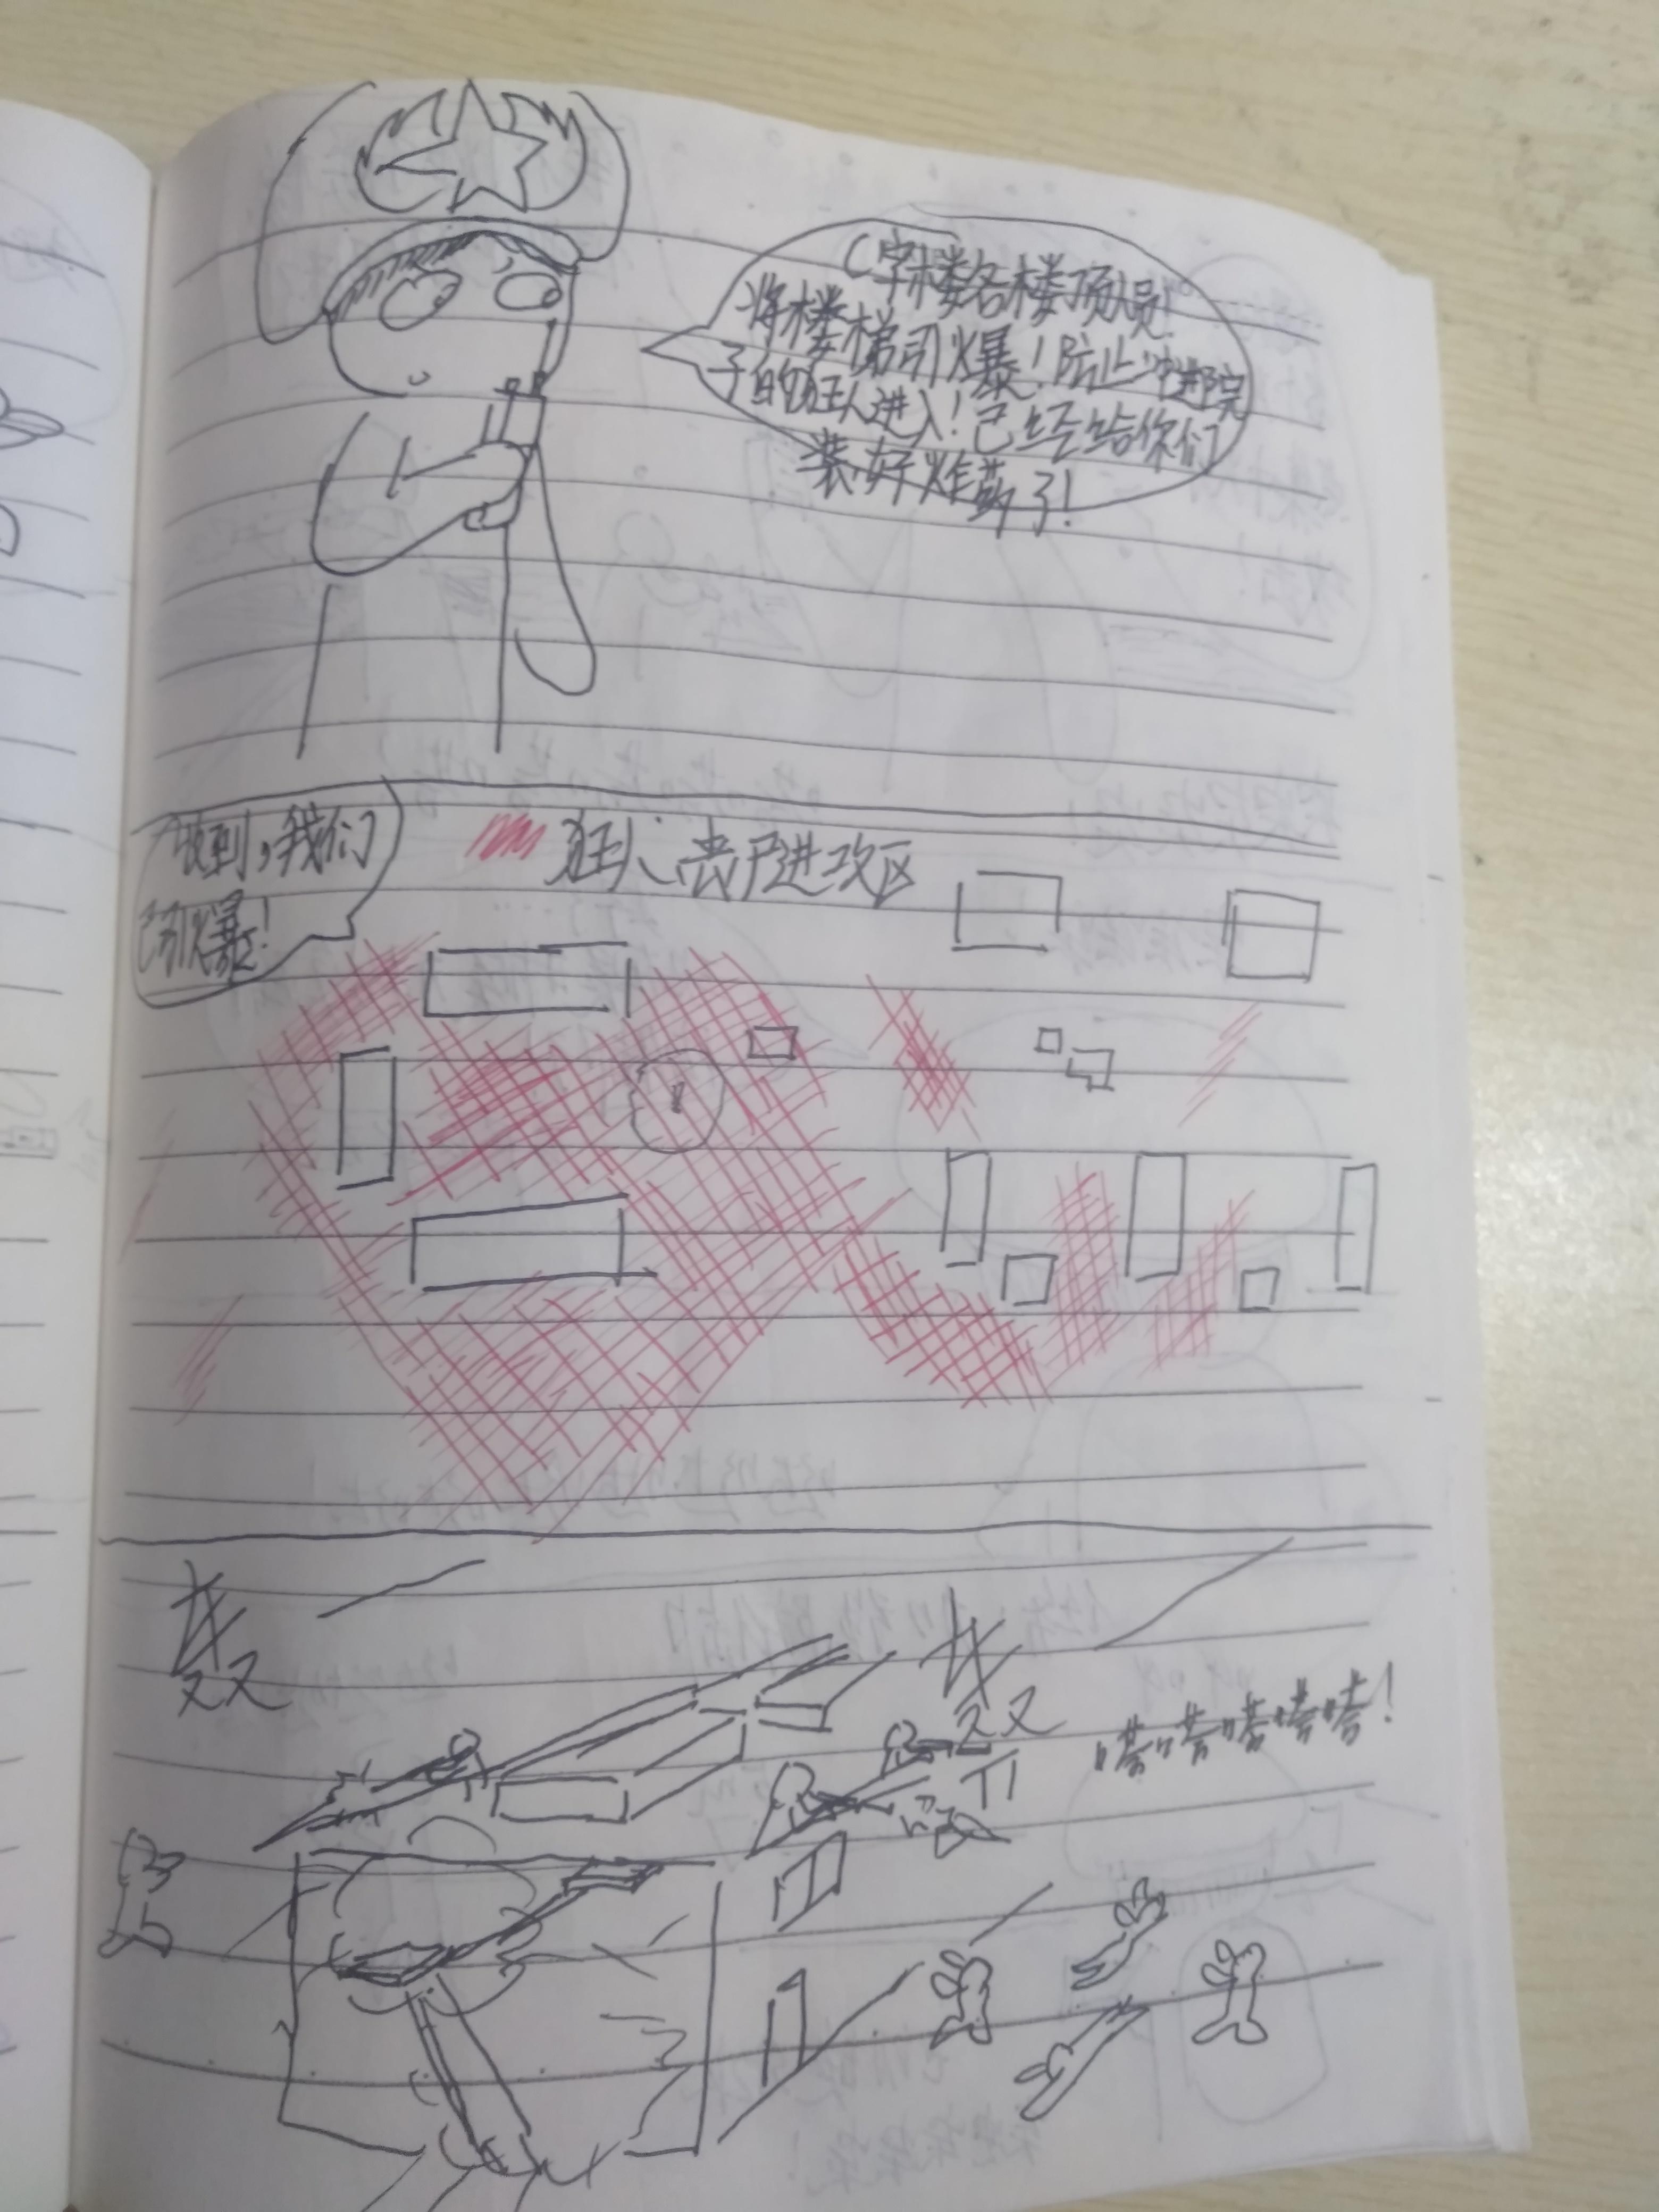 C字楼各楼顶人员!
将楼梯引爆!防止冲进院
子的狂人进入!已经给你们
装好炸药了!
收到,我们
已引爆!
狂人丧尸进攻区
轰
轰
嗒嗒嗒嗒嗒!